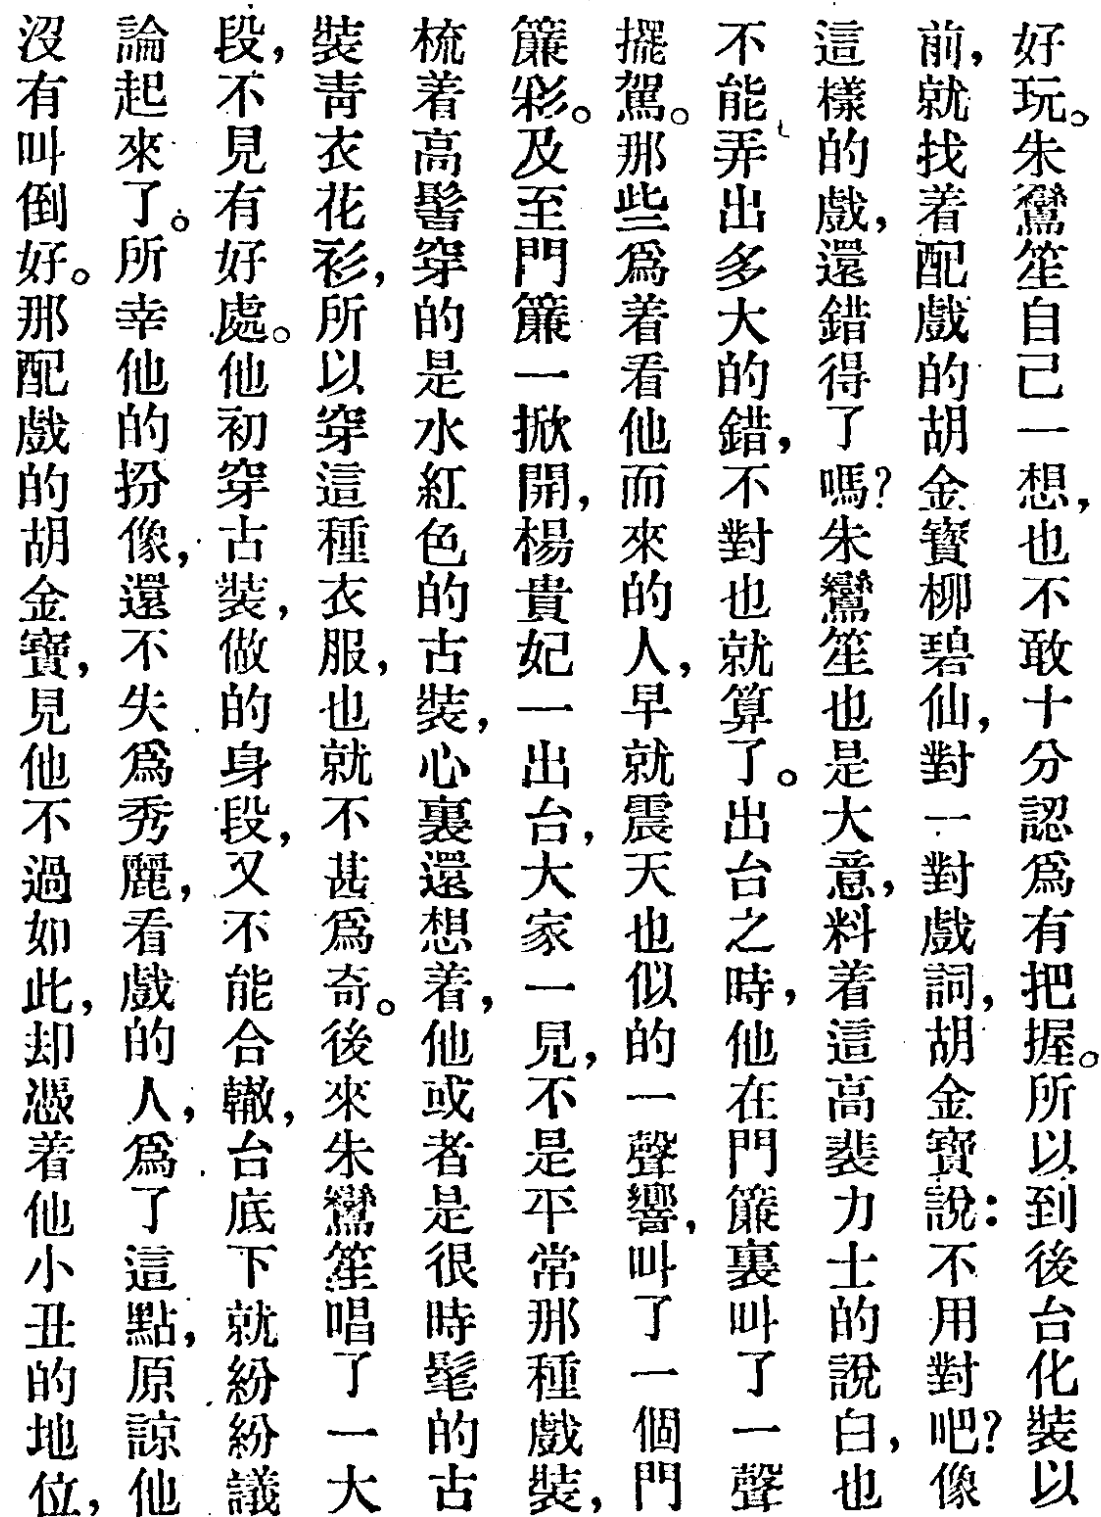 好玩。朱鸞笙自己一想，也不敢十分認爲有把握。所以到後台化裝以
前，就找着配戲的胡金寶柳碧仙，對一對戲詞，胡金寶說：不用對吧？像
這樣的戲，還錯得了嗎？朱鸞笙也是大意，料着這高裴力士的說白，也
不能弄出多大的錯，不對也就算了。出台之時，他在門簾裏叫了一聲
擺駕。那些爲着看他而來的人，早就震天也似的一聲響，叫了一個門
簾彩。及至門簾一掀開，楊貴妃一出台，大家一見，不是平常那種戲裝，
梳着高髻穿的是水紅色的古裝，心裏還想着，他或者是很時髦的古
裝青衣花衫，所以穿這種衣服，也就不甚爲奇。後來朱鸞笙唱了一大
段，不見有好處。他初穿古裝，做的身段，又不能合轍，台底下就紛紛議
論起來了。所幸他的扮像，還不失爲秀麗，看戲的人，爲了這點，原諒他
沒有叫倒好。那配戲的胡金寶，見他不過如此，却憑着他小丑的地位，